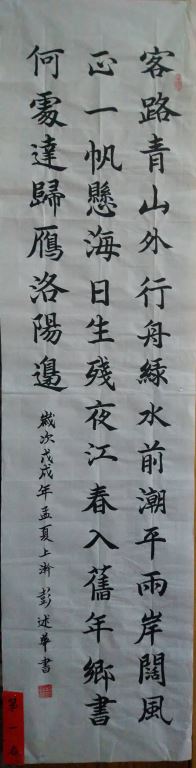 客路青山外行舟綠水前潮平兩岸闊風
正一帆懸海日生殘夜江春入舊年鄉書
何處達歸鴈洛陽邊
歲次戊戌年孟夏上澣彭述華書
第一